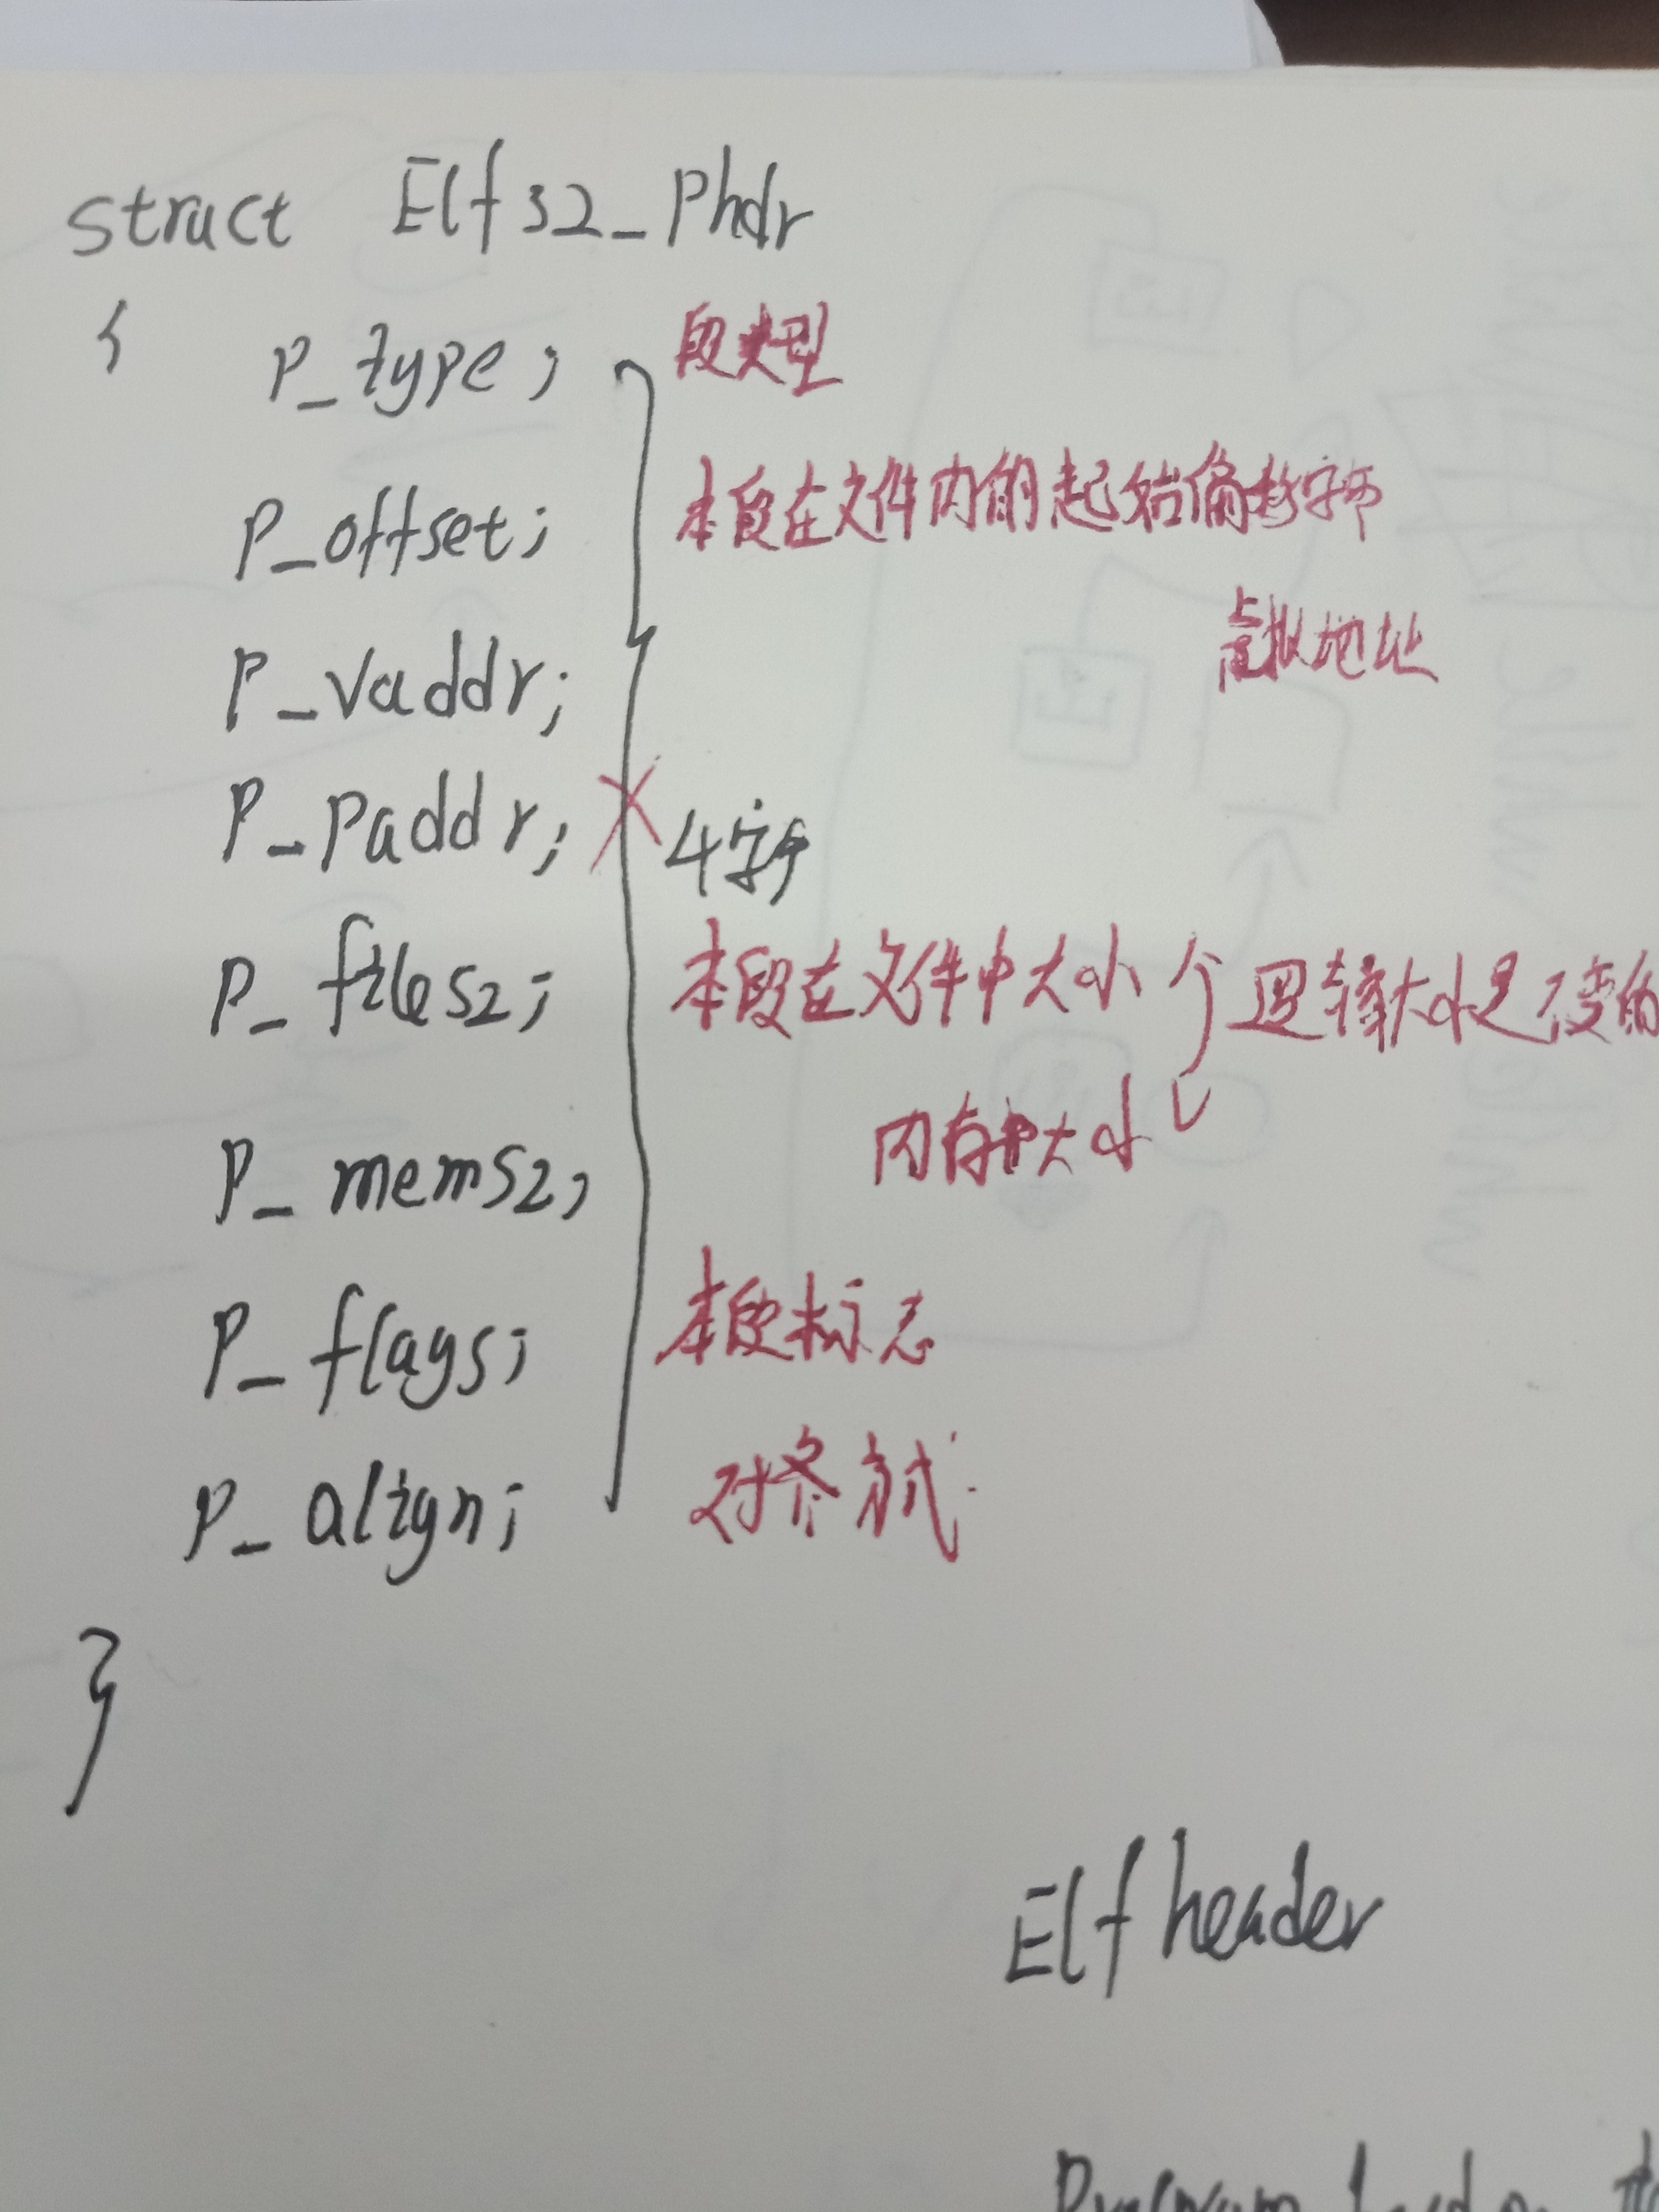 struct Elf32_Phdr
{ P_type; 段类型
P_offset; 本段在文件内的起始偏移字节
P_vaddr; 虚拟地址
P_paddr; 4字节
P_filesz; 本段在文件中大小 逻辑大小是不变的
P_memsz; 内存中大小
P_flags; 本段标志
P_align; 对齐方式.
}
Elf header